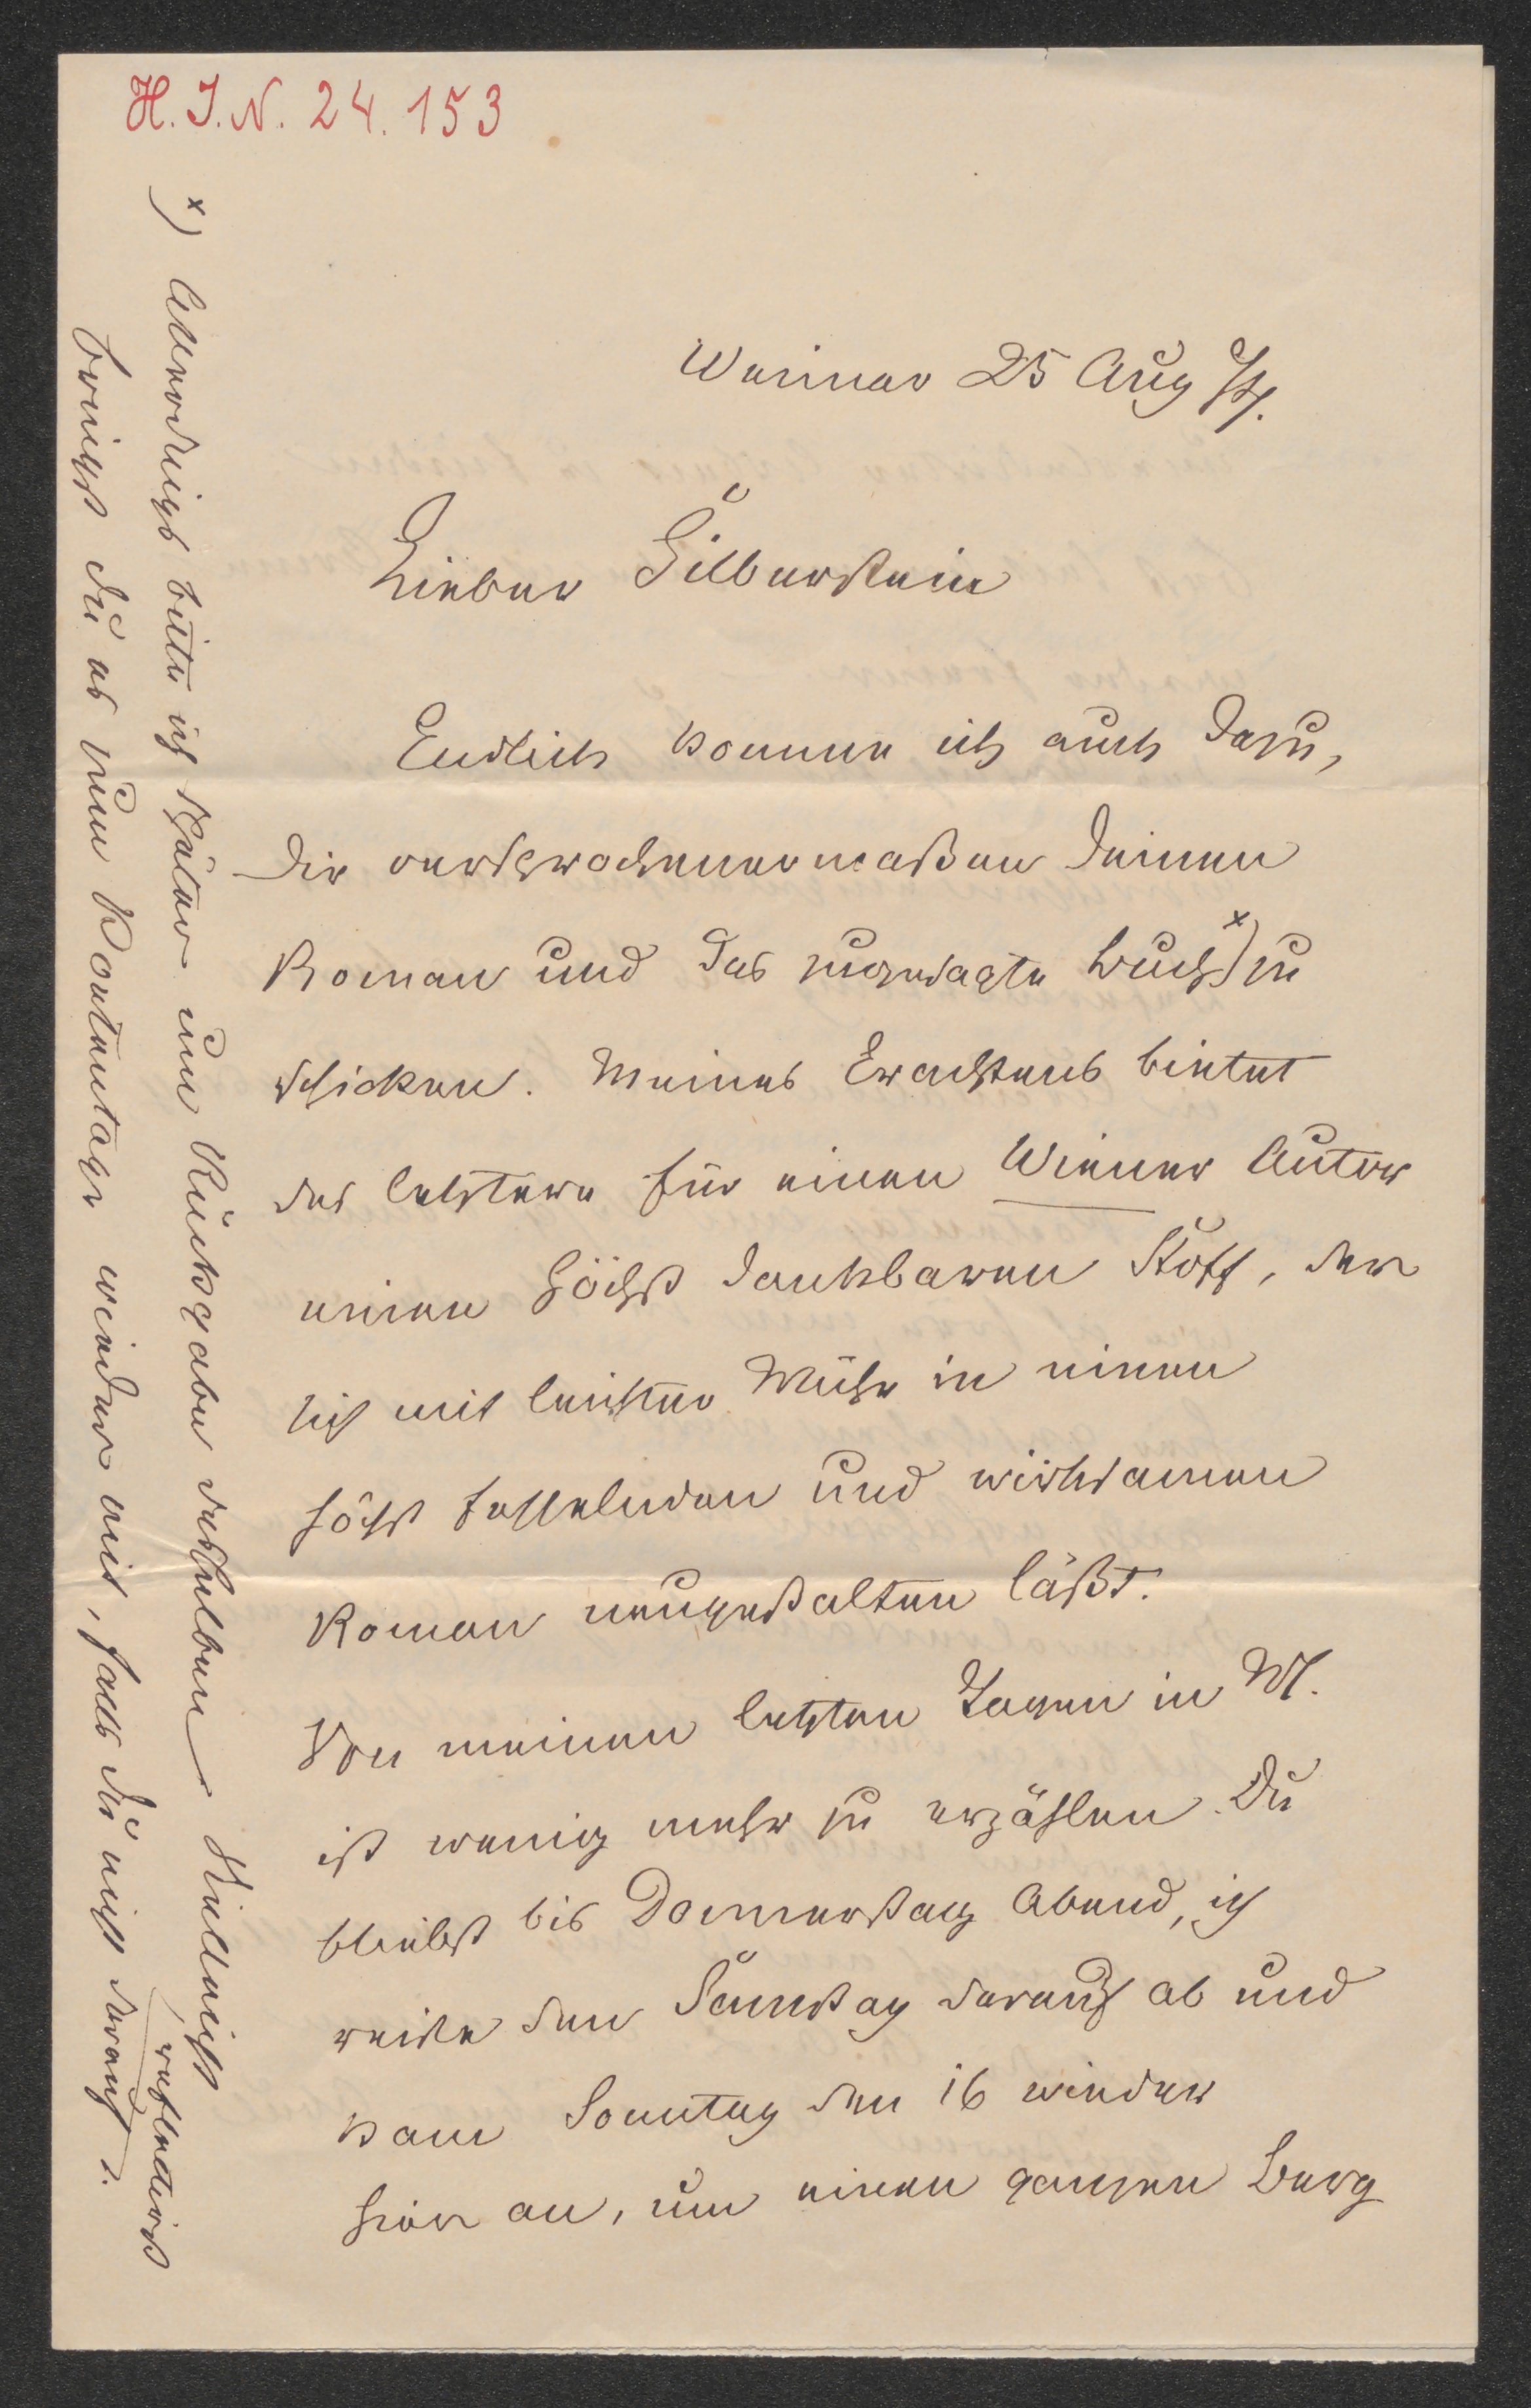 H. I. N. 24.153
Weimar 25 Aug
Lieber Silberstein
Endlich komme ich auch dazu,
Dir versprochenermaßen Deinen
Roman und das zugesagte Buch x) zu
schicken. Meines Erachtens bietet
das letztere für einen Wiener Autor
einen höchst dankbaren Stoff, der
sich mit leichter Mühe in einen
höchst fesselnden und wirksamen
Roman neugestalten läßt.
Von meinen letzten Tagen in M.
ist wenig mehr zu erzählen. Du
bliebst bis Donnerstag Abend, ich
reiste den Samstag darauf ab und
kam Sonntag den 16 wieder
hier an, um einen ganzen Berg
x) Allerdings bitte ich später um Rückgabe desselben. Vielleicht
bringst Du es zum Poetentage wieder mit, falls Du nicht darauf
reflectirst